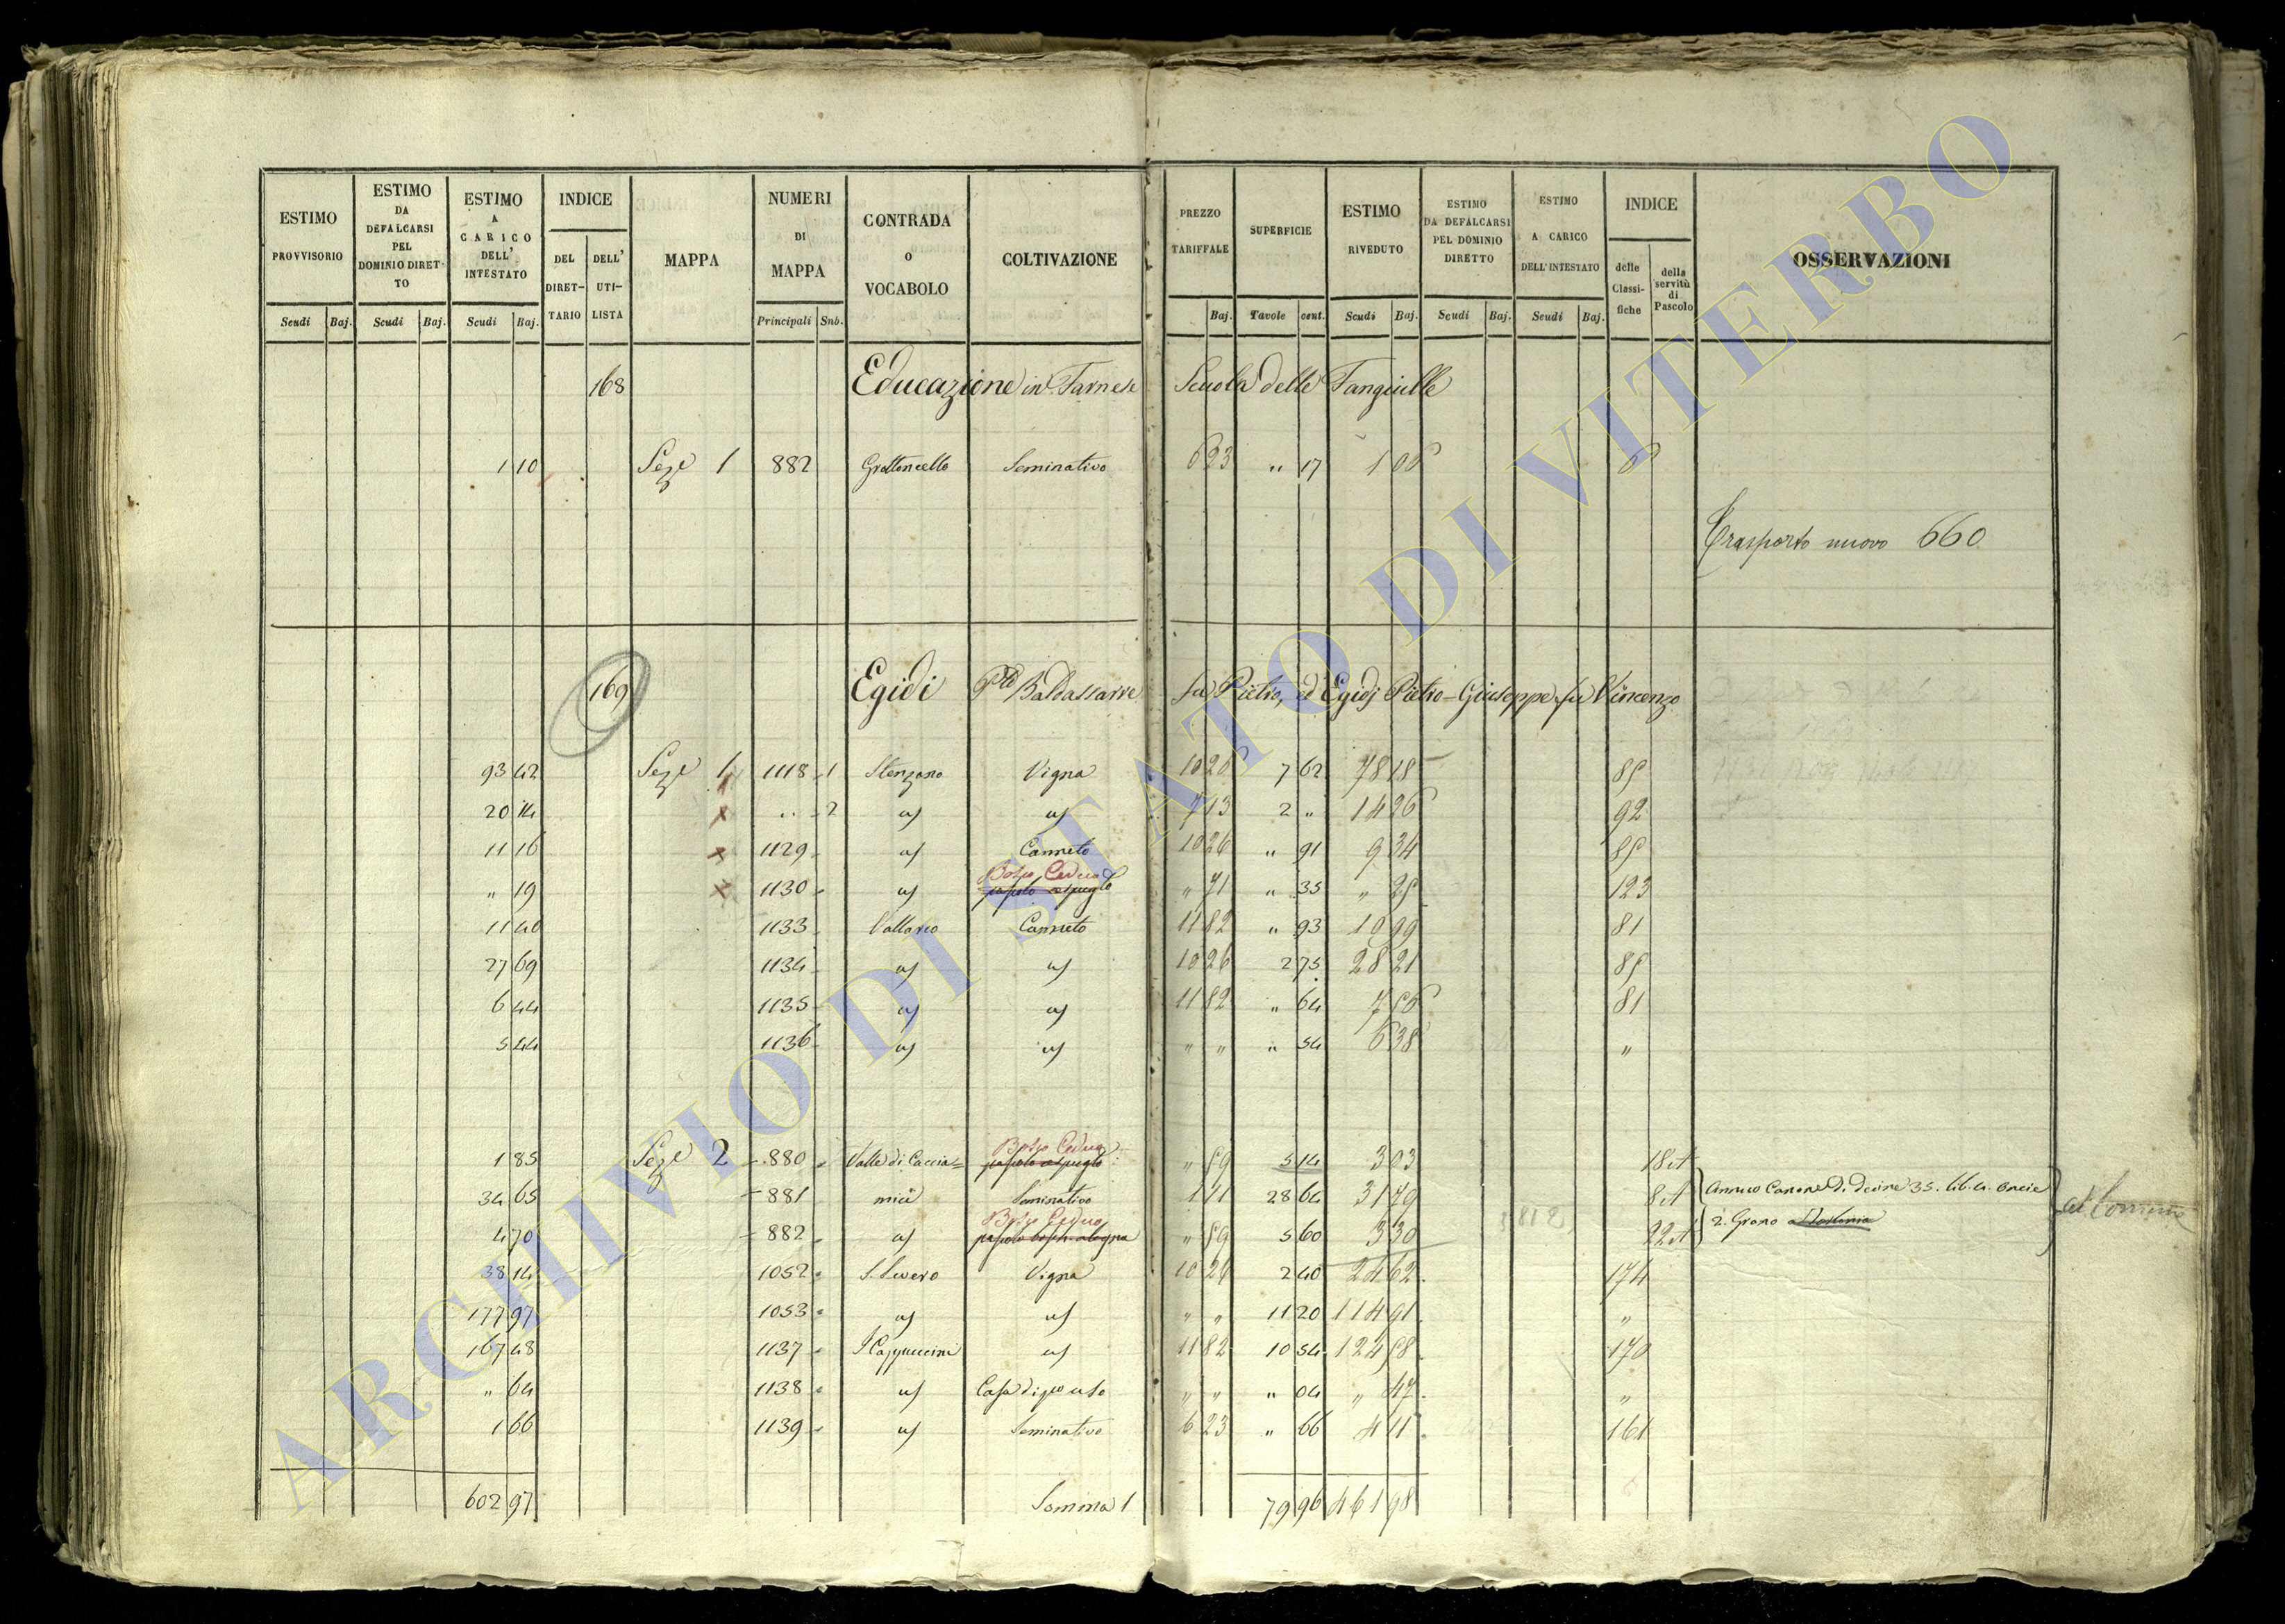 ESTIMO PROVVISORIO
ESTIMO DA DEFALCARSI PEL DOMINIO DIRET-TO
ESTIMO A CARICO DELL' INTESTATO
INDICE
DEL DIRET-TARIO
DELL' UTI-LISTA
MAPPA
NUMERI DI MAPPA
CONTRADA O VOCABOLO
COLTIVAZIONE
PREZZO TARIFFALE
SUPERFICIE
ESTIMO RIVEDUTO
ESTIMO DA DEFALCARSI PEL DOMINIO DIRETTO
ESTIMO A CARICO DELL'INTESTATO
INDICE
delle Classi-fiche
della servitù di Pascolo
OSSERVAZIONI
Scudi Baj. Scudi Baj. Scudi Baj. Principali Sub. Baj. Tavole cent. Scudi Baj. Scudi Baj. Scudi Baj.
168 Educazione in Farnese Scuola delle Fanciulle
1 10 Seze 1 882 Grottoncello Seminativo 6 23 " 17 1 06 6
Trasporto nuovo 660
169 Egidi Pte Baldassarre fu Pietro, ed Egidj Pietro-Giuseppe fu Vincenzo
93 42 Seze 1 1118 1 Stenzano Vigna 10 26 7 62 78 18 89
20 14 .. 2 aj aj 7 13 2 " 14 26 92
11 16 1129 aj Canneto 10 26 " 91 9 34 89
Bosco Ceduo
" 19 1130 aj " 71 " 35 " 25 123
11 40 1133 Vallorio Canneto 11 82 " 93 10 99 81
27 69 1134 aj aj 10 26 2 75 28 21 89
6 44 1135 aj aj 11 82 " 64 7 56 81
5 44 1136 aj aj " " " 54 6 38 "
Bosco Ceduo
1 85 Seze 2 880 Valle di Caccia= " 59 5 14 3 03 18 et
34 65 881 mici Seminativo 1 11 28 64 31 79 8 et Annuo Canone di Decine 35. lib. 4. Oncie
Bosco Ceduo
4 70 882 aj " 59 5 60 3 30 22 et 2. Grano
38 14 1052 S. Severo Vigna 10 26 2 40 24 62 174
177 97 1053 aj aj " " 11 20 114 91 "
167 48 1137 I Cappuccini aj 11 82 10 54 124 58 170
" 64 1138 aj Casa di pro uso " " " 04 " 47 "
1 66 1139 aj Seminativo 6 23 " 66 4 11 161
602 97 Somma 1 79 96 461 98
ARCHIVIO DI STATO DI VITERBO